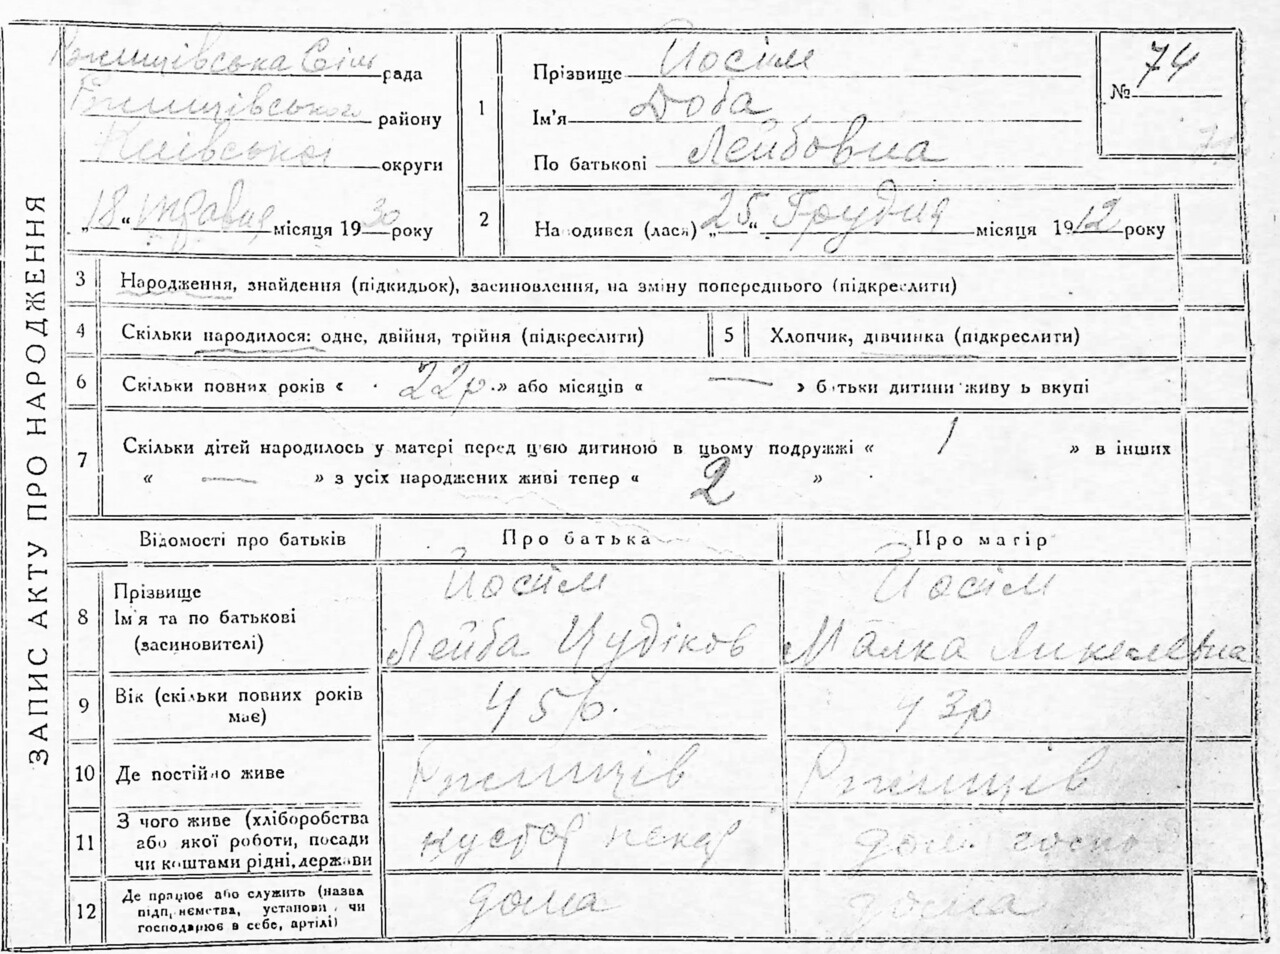 ЗАПИС АКТУ ПРО НАРОДЖЕННЯ
Ржищівська Сіль рада
Ржищівського району
Київської округи
„18“ травня місяця 1930 року
1
Прізвище Йосім
Ім'я Доба
По батькові Лейбовна
№ 74
2
На одився (лася) „25“ Грудня місяця 1912 року
3 Народження, знайдення (підкидьок), засиновлення, на зміну попереднього (підкреслити)
4 Скільки народилося: одне, двійня, трійня (підкреслити)
5 Хлопчик, дівчинка (підкреслити)
6 Скільки повних років « 22р. » або місяців « — » б тьки дитини живу ь вкупі
7 Скільки дітей народилось у матері перед цією дитиною в цьому подружжі « 1 » в інших
« — » з усіх народжених живі тепер « 2 »
Відомості про батьків Про батька Про матір
8 Прізвище
Ім'я та по батькові
(засиновителі)
Йосім
Лейба Иудіков
Йосім
Малка Янкелевна
9 Вік (скільки повних років
має)
45р.
43р
10 Де постійно живе Ржищів Ржищів
11 З чого живе (хліборобства
або якої роботи, посади
чи коштами рідні, держави
кустар пекар
дом. госпо
12 Де працює або служить (назва
підпр иємства, установи чи
господарює в себе, артілі)
дома
дома